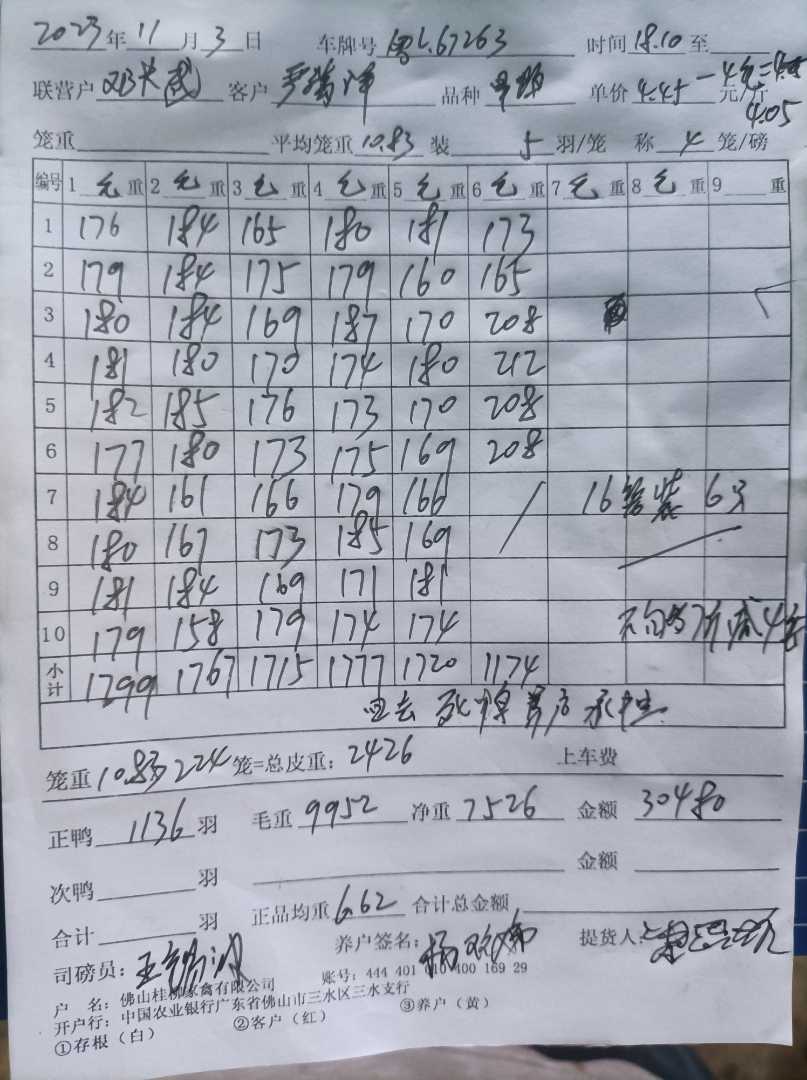 2023年11月3日 车牌号 粤L.67263 时间 18.10 至
联营户 邓 武 客户 严 品种 单价 4.45 - 4毛= 元/斤
4.05
笼重 平均笼重 10.83 装 5 羽/笼 称 4 笼/磅
编号 1 毛 重 2 毛 重 3 毛 重 4 毛 重 5 毛 重 6 毛 重 7 毛 重 8 毛 重 9 重
1 176 184 165 180 181 173
2 179 184 175 179 160 165
3 180 184 169 187 170 208
4 181 180 170 174 180 212
5 182 185 176 173 170 208
6 177 180 173 175 169 208
7 184 161 166 179 166 16笼装6只
8 180 167 173 185 169
9 181 184 169 171 181
10 179 158 179 174 174
小计 1799 1767 1715 1777 1720 1174
回去 死掉养户承担
笼重 10.83 224 笼=总皮重: 2426 上车费
正鸭 1136 羽 毛重 9952 净重 7526 金额 30480
次鸭 羽 金额
合计 羽 正品均重 6.62 合计总金额
司磅员: 王 养户签名: 杨 提货人:
户 名: 佛山桂柳家禽有限公司 账号: 444 401 010 400 169 29
开户行: 中国农业银行广东省佛山市三水区三水支行
①存根(白) ②客户(红) ③养户(黄)